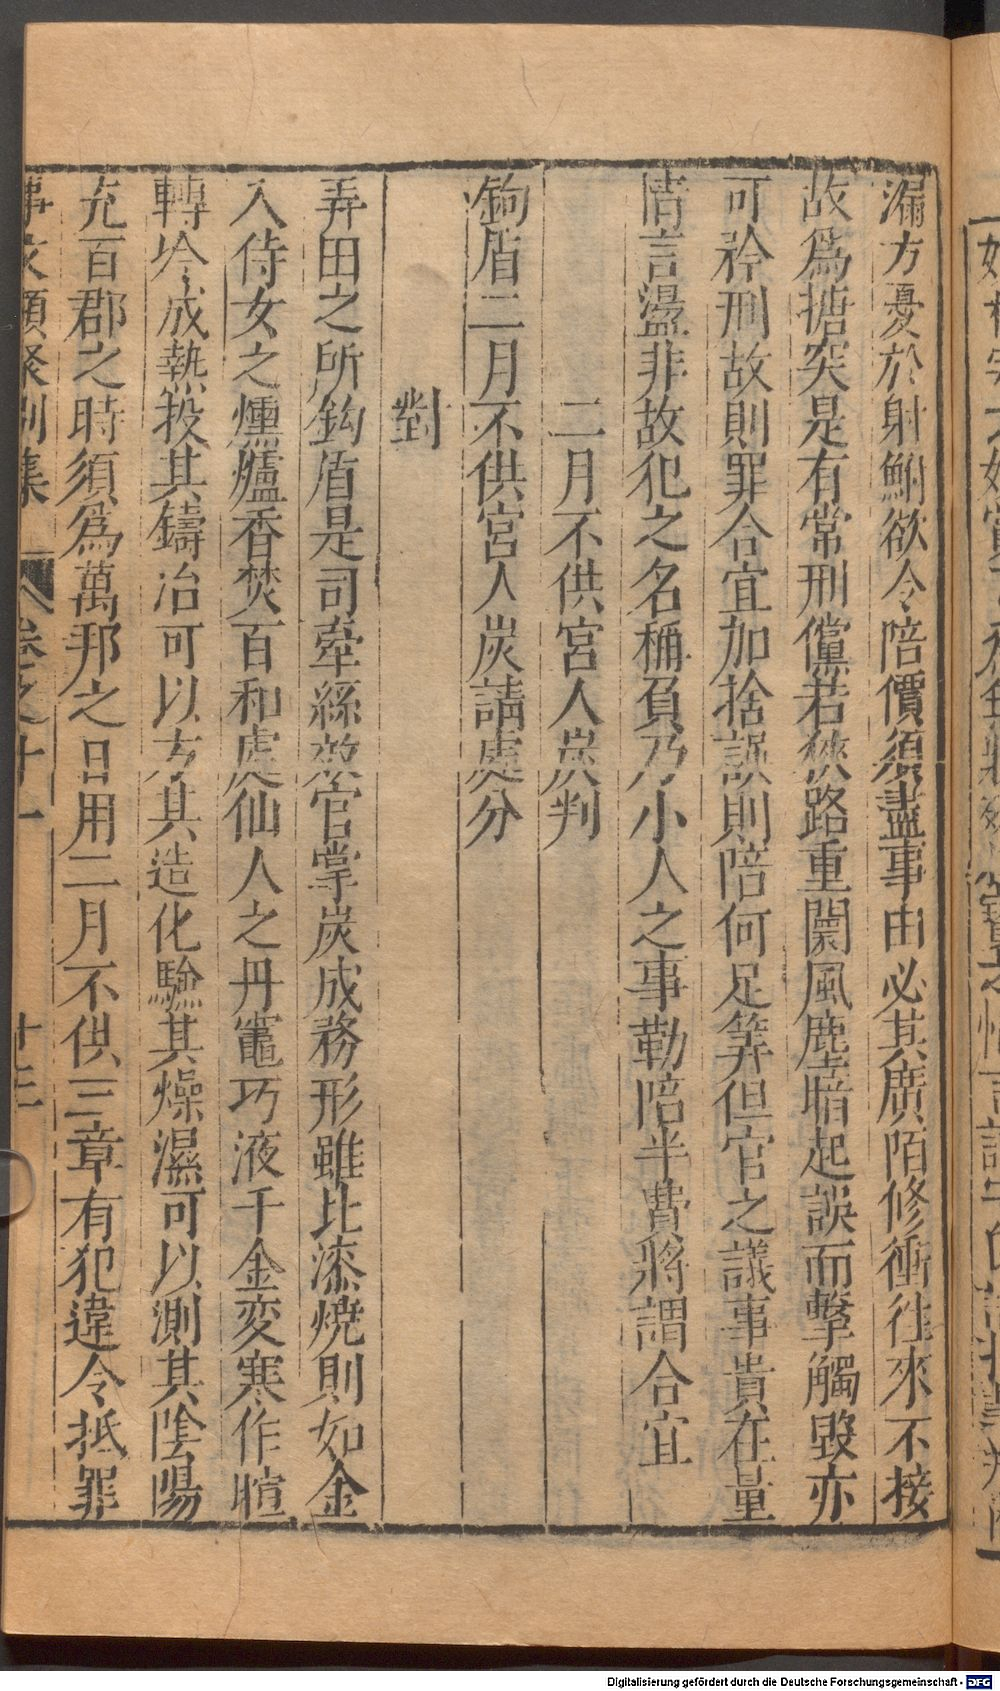 漏方憂於射鮒欲令陪價須盡事由必其廣陌修衝往來不接
故爲搪突是有常刑儻若狹路重闤風塵暗起誤而擊觸毀亦
可矜刑故則罪合宜加捨誤則陪何足筭但官之議事貴在量
情言盪非故犯之名稱負乃小人之事勒陪半費將謂合宜
二月不供宮人炭判
鉤盾二月不供宮人炭請處分
對
弄田之所鈎盾是司牽絲效官掌炭成務形雖比漆燒則如金
入侍女之燻爐香焚百和處仙人之丹竈巧液千金変寒作暄
轉冷成熱投其鑄冶可以方其造化驗其燥濕可以測其陰陽
充百郡之時須爲萬邦之日用二月不供三章有犯違令抵罪
事文類聚別集 卷之十一 十三
Digitalisierung gefördert durch die Deutsche Forschungsgemeinschaft - DFG